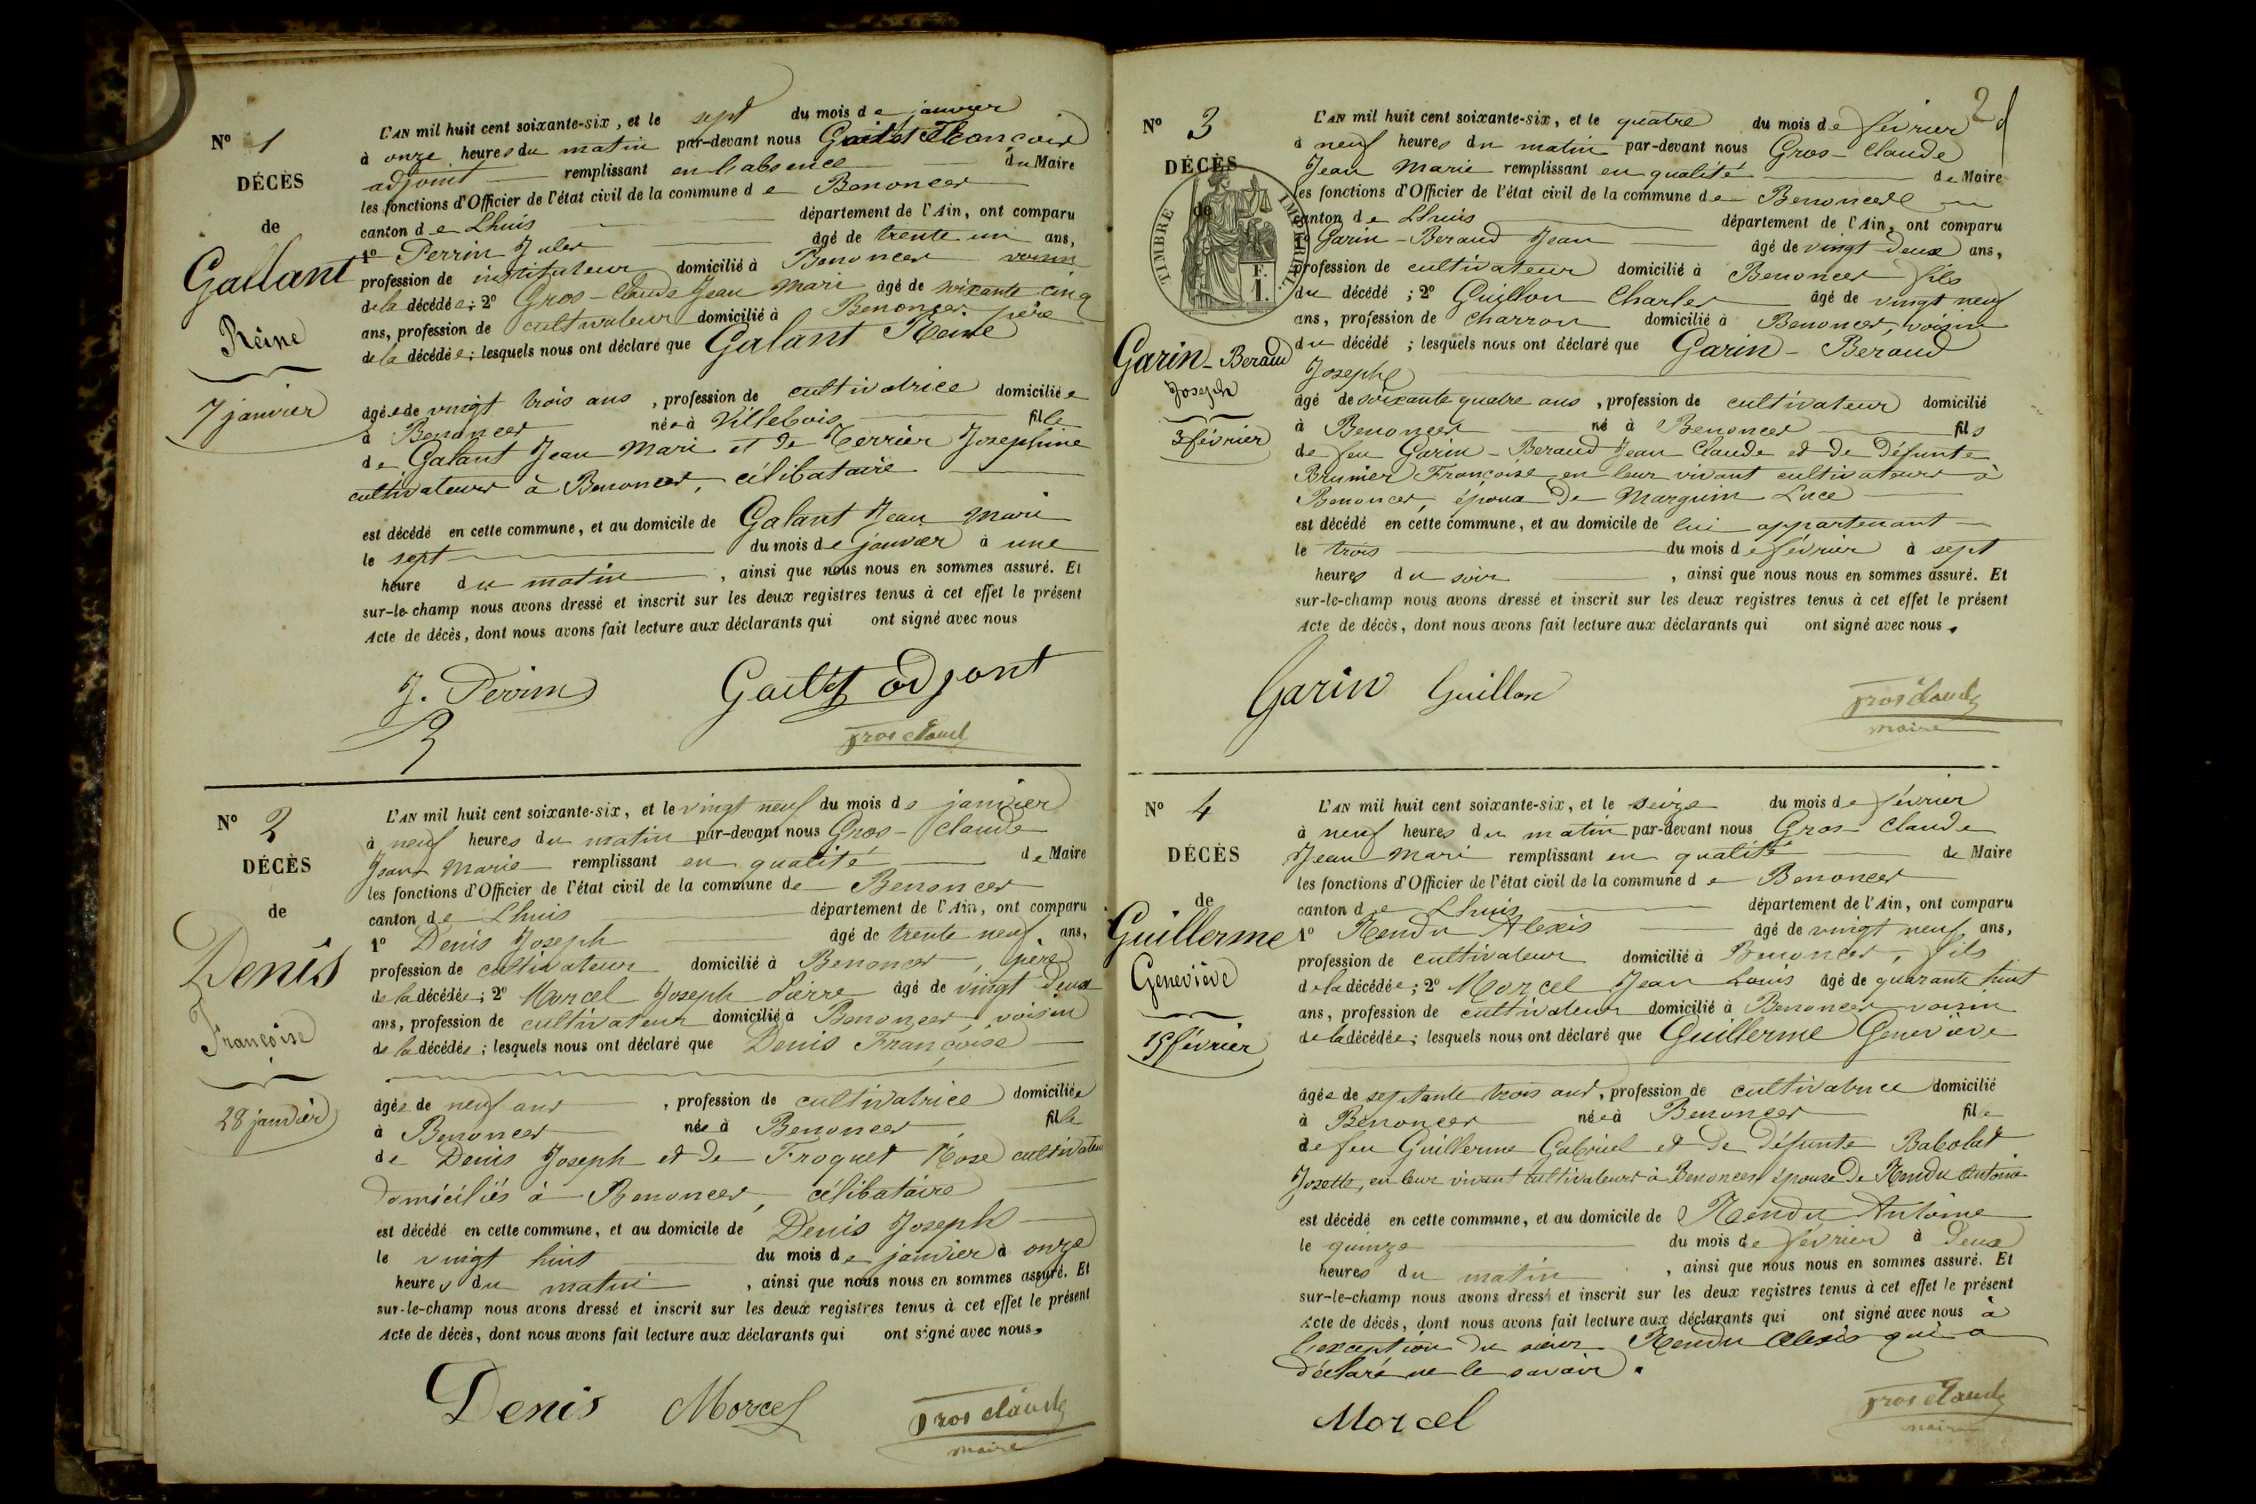 Nº 1
DÉCÈS
de
Gallant
Reine
7 janvier
L'AN mil huit cent soixante-six, et le sept du mois de janvier
à onze heures du matin par-devant nous François
adjoint remplissant en l'absence du Maire
les fonctions d'Officier de l'état civil de la commune de Benonces
canton de Lhuis département de l'Ain, ont comparu
1º Perrin Jules âgé de trente un ans,
profession de instituteur domicilié à Benonces voisin
de la décédée; 2º Gros-Claude Jean Mari âgé de soixante cinq
ans, profession de cultivateur domicilié à Benonces, père
de la décédée; lesquels nous ont déclaré que Galant Reine
âgée de vingt trois ans, profession de cultivatrice domiciliée
à Benonces née à Villebois fille
de Galant Jean Mari et de Terrier Josephine
cultivateurs à Benonces, célibataire
est décédé en cette commune, et au domicile de Galant Jean Mari
le sept du mois de janvier à une
heure du matin, ainsi que nous nous en sommes assuré. Et
sur-le-champ nous avons dressé et inscrit sur les deux registres tenus à cet effet le présent
Acte de décès, dont nous avons fait lecture aux déclarants qui ont signé avec nous
J. Perrin adjont
gros claude
Nº 2
DÉCÈS
de
Denis
Françoise
28 janvier
L'AN mil huit cent soixante-six, et le vingt neuf du mois de janvier
à neuf heures du matin par-devant nous Gros-Claude
Jean Marie remplissant en qualité de Maire
les fonctions d'Officier de l'état civil de la commune de Benonces
canton de Lhuis département de l'Ain, ont comparu
1º Denis Joseph âgé de trente neuf ans,
profession de cultivateur domicilié à Benonces, père
de la décédée; 2º Morcel Joseph Pierre âgé de vingt deux
ans, profession de cultivateur domicilié à Benonces, voisin
de la décédée; lesquels nous ont déclaré que Denis Françoise
âgée de neuf ans, profession de cultivatrice domiciliée
à Benonces née à Benonces fille
de Denis Joseph et de Froquet Rose cultivateurs
domiciliés à Benonces, célibataire
est décédé en cette commune, et au domicile de Denis Joseph
le vingt huit du mois de janvier à onze
heures du matin, ainsi que nous nous en sommes assuré. Et
sur-le-champ nous avons dressé et inscrit sur les deux registres tenus à cet effet le présent
Acte de décès, dont nous avons fait lecture aux déclarants qui ont signé avec nous.
Denis Morcel gros claude
maire
2
Nº 3
DÉCÈS
de
TIMBRE IMPÉRIAL
F.
1.
Garin-Beraud
Joseph
3 février
L'AN mil huit cent soixante-six, et le quatre du mois de février
à neuf heures du matin par-devant nous Gros-Claude
Jean Marie remplissant en qualité de Maire
les fonctions d'Officier de l'état civil de la commune de Benonces
canton de Lhuis département de l'Ain, ont comparu
1º Garin-Beraud Jean âgé de vingt deux ans,
profession de cultivateur domicilié à Benonces fils
du décédé; 2º Guillon Charles âgé de vingt neuf
ans, profession de charron domicilié à Benonces, voisin
du décédé; lesquels nous ont déclaré que Garin-Beraud
Joseph
âgé de soixante quatre ans, profession de cultivateur domicilié
à Benonces né à Benonces fils
de feu Garin-Beraud Jean Claude et de défunte
Brunier Françoise en leur vivant cultivateurs à
Benonces, époux de Marguin Luce
est décédé en cette commune, et au domicile de lui appartenant
le trois du mois de février à sept
heures du soir, ainsi que nous nous en sommes assuré. Et
sur-le-champ nous avons dressé et inscrit sur les deux registres tenus à cet effet le présent
Acte de décès, dont nous avons fait lecture aux déclarants qui ont signé avec nous.
Garin Guillon gros claude
maire
Nº 4
DÉCÈS
de
Guillerme
Geneviève
15 février
L'AN mil huit cent soixante-six, et le seize du mois de février
à neuf heures du matin par-devant nous Gros-Claude
Jean Mari remplissant en qualité de Maire
les fonctions d'Officier de l'état civil de la commune de Benonces
canton de Lhuis département de l'Ain, ont comparu
1º Rendu Alexis âgé de vingt neuf ans,
profession de cultivateur domicilié à Benonces, fils
de la décédée; 2º Morcel Jean Louis âgé de quarante huit
ans, profession de cultivateur domicilié à Benonces voisin
de la décédée; lesquels nous ont déclaré que Guillerme Geneviève
âgée de septante trois ans, profession de cultivatrice domicilié
à Benonces née à Benonces fille
de feu Guillerme Gabriel et de défunte Babolat
Josette, en leur vivant cultivateurs à Benonces épouse de Rendu Antoine
est décédé en cette commune, et au domicile de Rendu Antoine
le quinze du mois de février à deux
heures du matin, ainsi que nous nous en sommes assuré. Et
sur-le-champ nous avons dressé et inscrit sur les deux registres tenus à cet effet le présent
Acte de décès, dont nous avons fait lecture aux déclarants qui ont signé avec nous à
l'exception du sieur Rendu Alexis qui a
déclaré ne le savoir.
Morcel gros claude
maire